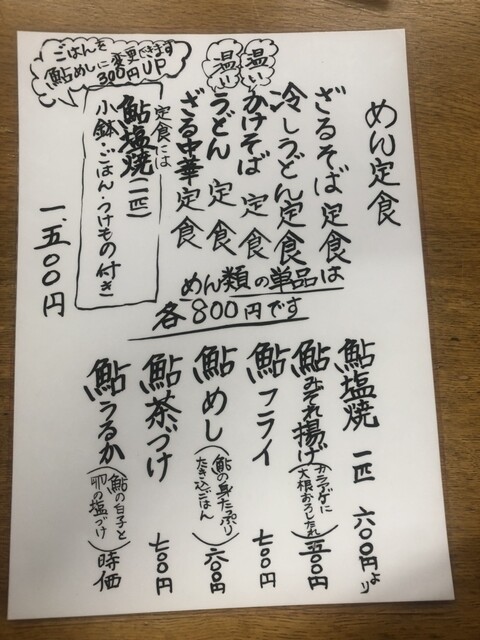 めん定食
ざるそば定食
冷しうどん定食
温い
かけそば定食
温い
うどん定食
ざる中華定食
定食には
鮎塩焼(一匹)
小鉢・ごはん・つけもの付き
一、五〇〇円
ごはんを
鮎めしに変更できます
300円UP
めん類の単品は
各800円です
鮎塩焼 一匹 六〇〇円より
鮎みぞれ揚げ(カラアゲに
大根おろしたれ)
鮎フライ 七〇〇円
鮎めし(鮎の身たっぷり
たき込ごはん)六〇〇円
鮎茶づけ 七〇〇円
鮎うるか(鮎の白子と
卵の塩づけ)時価